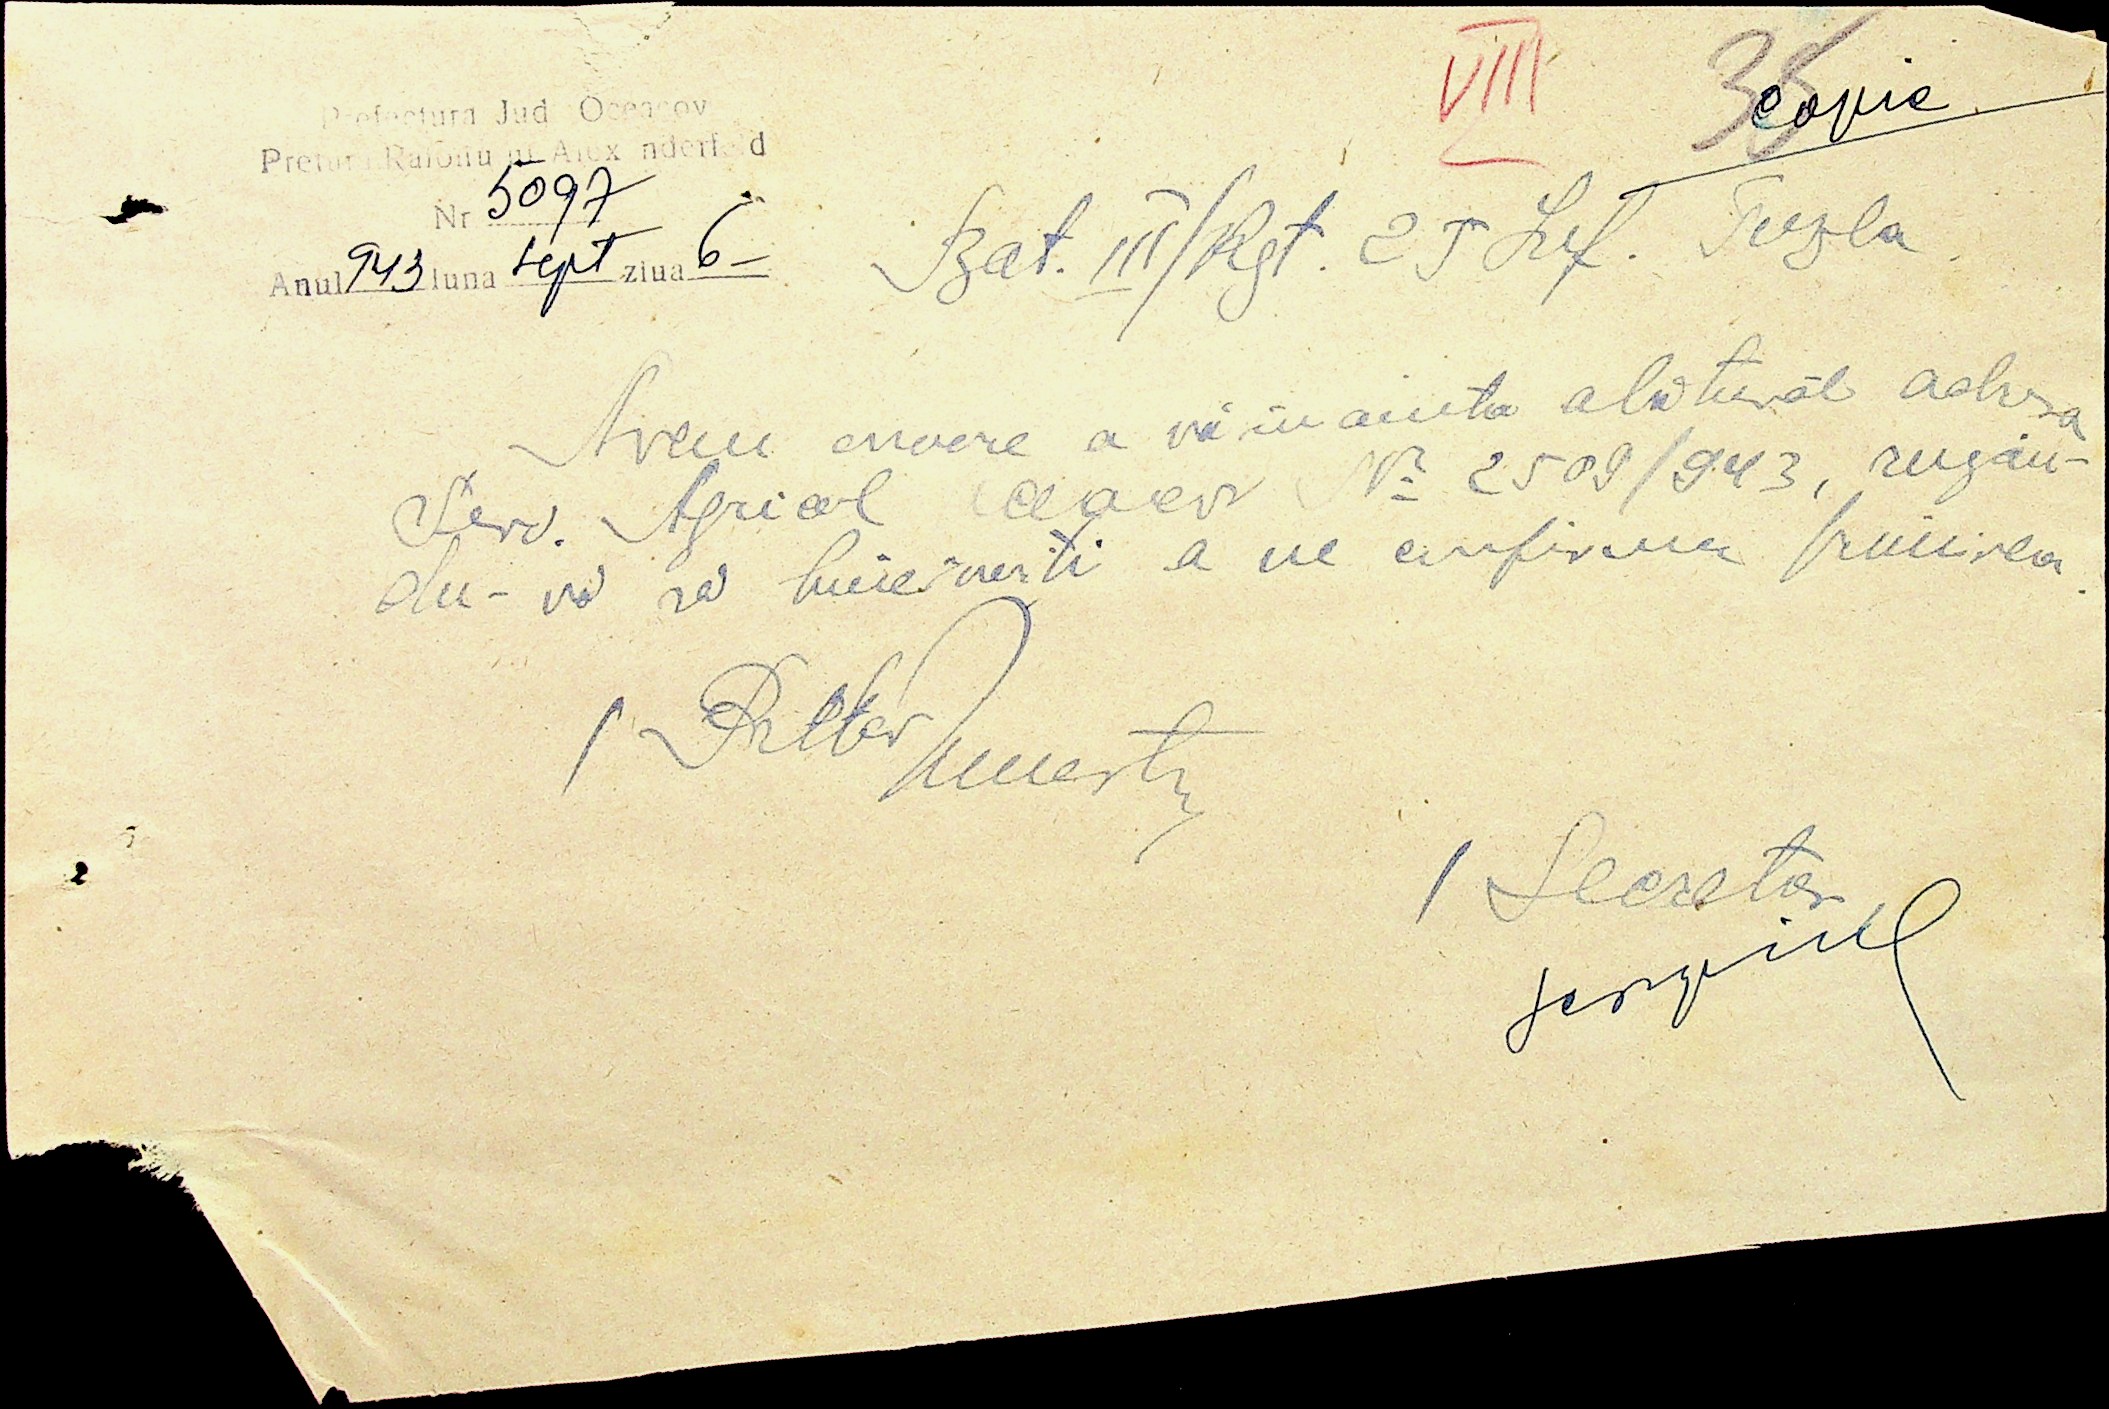 VIII
35
copie
Prefectura Jud Oceacov
Pretura Raionului Alexanderfeld
Nr 5097
Anul 943 luna sept ziua 6
Bat. III/Rgt. 25 Inf. Tuzla
Avem onoare a vă înainta alăturat adresa
Serv. Agricol Nº 2509/943, rugân-
du-vă să binevoiți a ne confirma primirea.
/ Pretor
/ Secretar